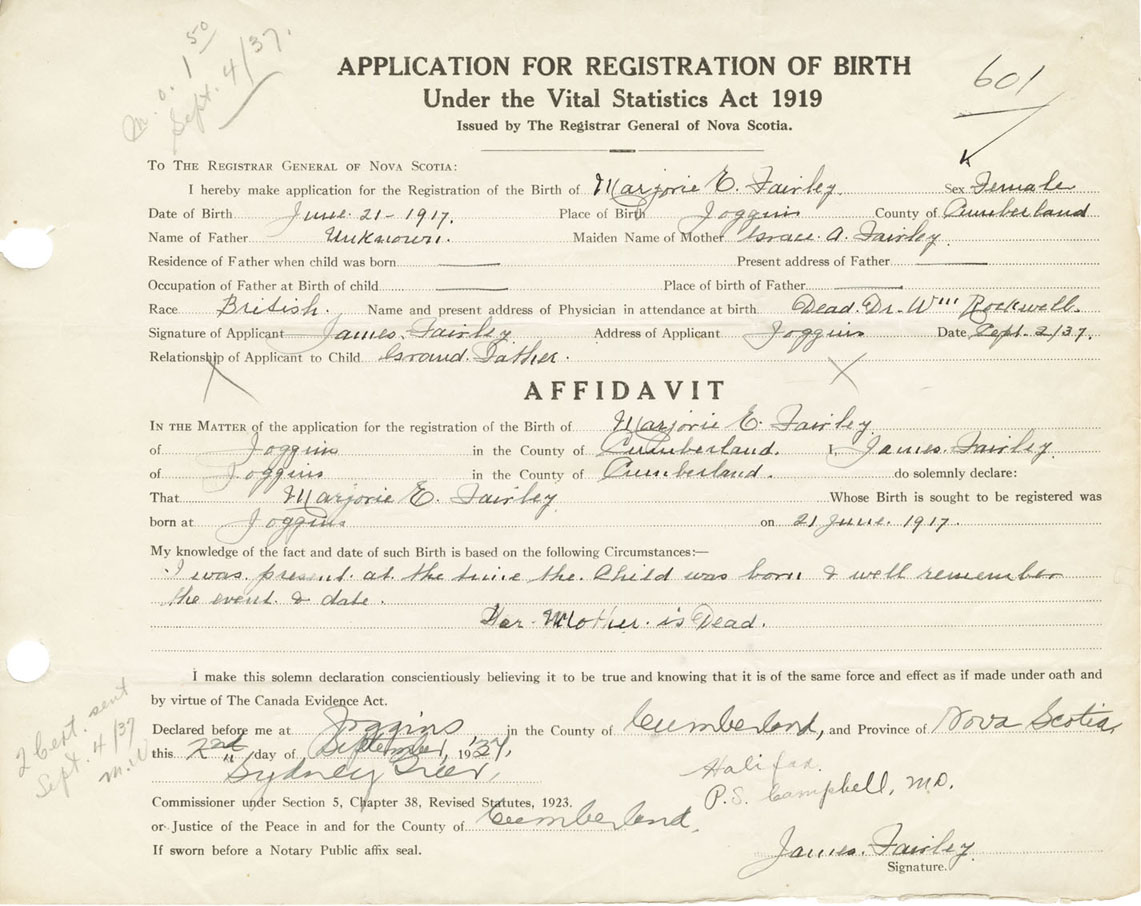 m. o. 1 50
Sept. 4/37.
601
APPLICATION FOR REGISTRATION OF BIRTH
Under the Vital Statistics Act 1919
Issued by The Registrar General of Nova Scotia.
To The Registrar General of Nova Scotia:
I hereby make application for the Registration of the Birth of Marjorie E. Fairley. Sex Female
Date of Birth June 21 - 1917. Place of Birth Joggins County of Cumberland
Name of Father Unknown. Maiden Name of Mother Grace. A. Fairley.
Residence of Father when child was born Present address of Father
Occupation of Father at Birth of child Place of birth of Father
Race British. Name and present address of Physician in attendance at birth Dead. Dr. Wm Rockwell.
Signature of Applicant James. Fairley. Address of Applicant Joggins Date Sept. 2/37.
Relationship of Applicant to Child Grand. Father.
AFFIDAVIT
In the Matter of the application for the registration of the Birth of Marjorie E. Fairley.
of Joggins in the County of Cumberland. I, James. Fairley.
of Joggins in the County of Cumberland. do solemnly declare:
That Marjorie E. Fairley Whose Birth is sought to be registered was
born at Joggins on 21 June. 1917.
My knowledge of the fact and date of such Birth is based on the following Circumstances:—
I was present at the time the Child was born & well remember
the event & date.
Her Mother is Dead.
I make this solemn declaration conscientiously believing it to be true and knowing that it is of the same force and effect as if made under oath and
by virtue of The Canada Evidence Act.
Declared before me at Joggins in the County of Cumberland, and Province of Nova Scotia
this 2nd day of September, 1937,
Sydney Greer,
Halifax.
P.S. Campbell, M.D.
Commissioner under Section 5, Chapter 38, Revised Statutes, 1923.
or Justice of the Peace in and for the County of Cumberland.
If sworn before a Notary Public affix seal.
James. Fairley.
Signature.
2 Cert. sent
Sept. 4/37